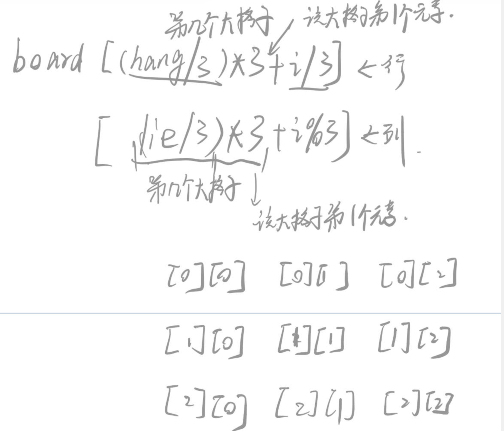 第几个大格子 该大格子第1个元素.
board [(hang/3)*3+i/3] ←行
[(lie/3)*3+i%3] ←列.
第几个大格子
该大格子第1个元素.
[0][0] [0][1] [0][2]
[1][0] [1][1] [1][2]
[2][0] [2][1] [2][2]